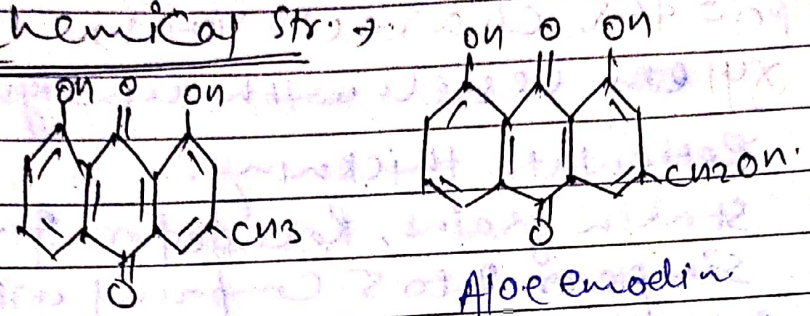 hemical Str. →
OH O OH
OH O OH
CH3
CH2OH.
O
O
Aloe emodin